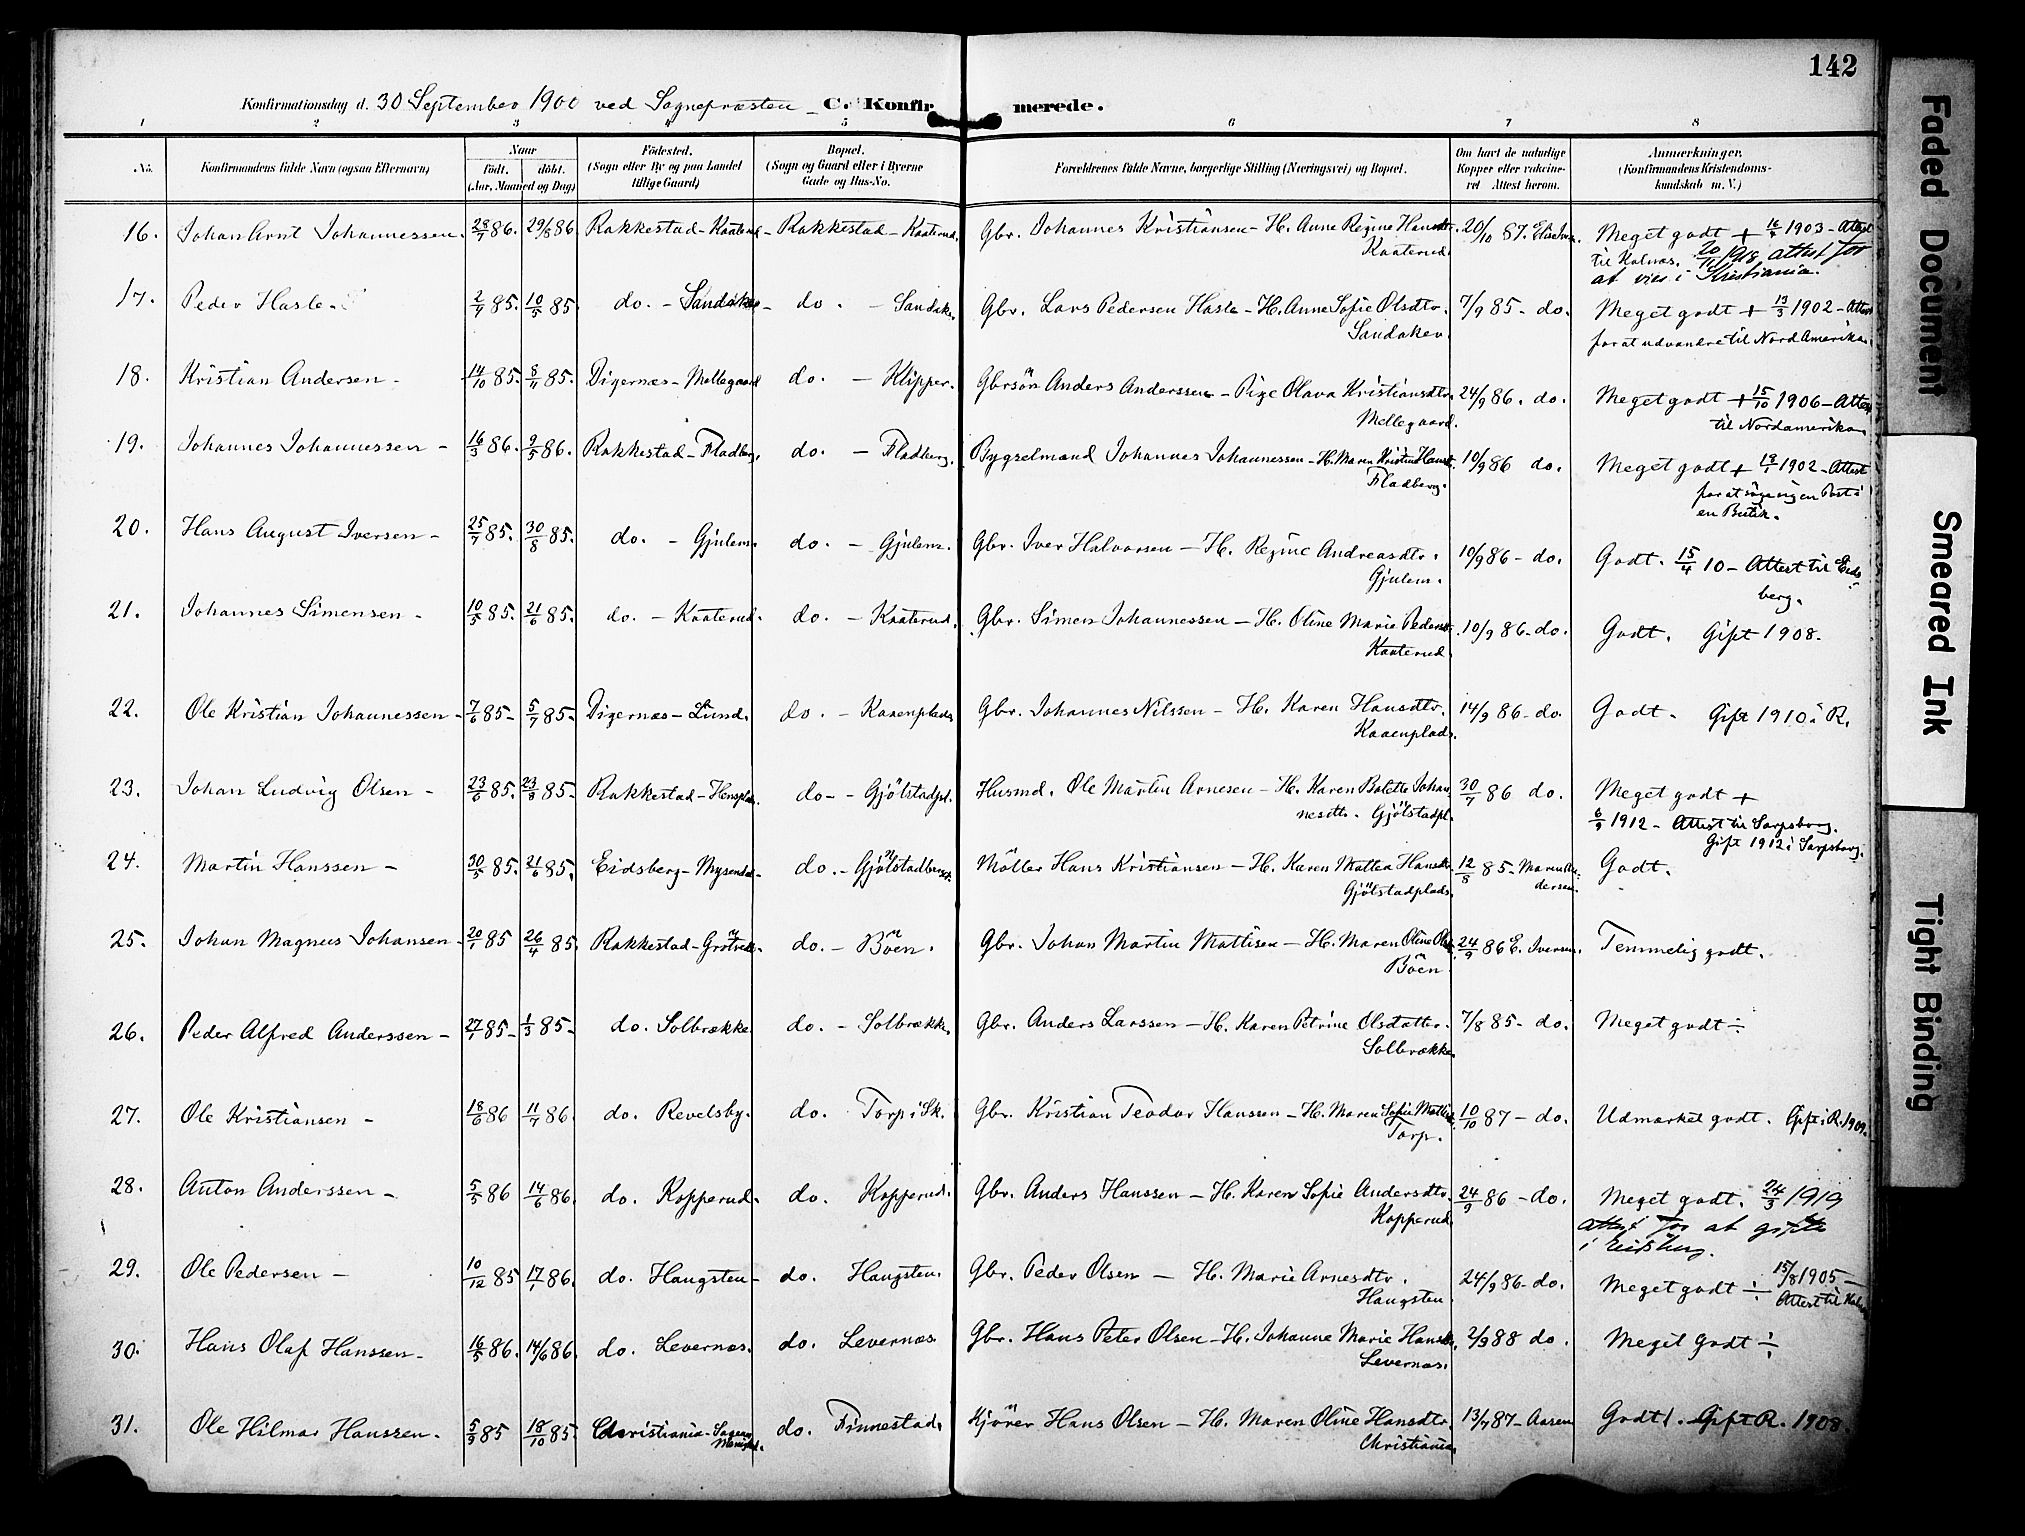 142
Konfirmationsdag d. 30 September 1900 ved Sognepræsten C. Konfirmerede.
1 2 3 4 5 6 7 8
No. Konfirmandens fulde Navn (ogsaa Efternavn) Naar født. døbt. (Aar, Maaned og Dag) Fødested. (Sogn eller By og paa Landet tillige Gaard) Bopæl. (Sogn og Gaard eller i Byerne Gade og Hus-No. Forældrenes fulde Navne, borgerlige Stilling (Næringsvei) og Bopæl. Om havt de naturlige Kopper eller vakcineret Attest herom. Anmærkninger. (Konfirmandens Kristendomskundskab m. V.)
16. Johan Arnt Johannessen. 28/7 86. 29/8 86. Rakkestad - Kaaterud - Rakkestad - Kaaterud. Gbr. Johannes Kristiansen - H. Anne Regine Hansdtr. 20/10 87. Meget godt + 1903 - Attest
Kaaterud. til Kalnæs. 20/11 1918 attest for
at vies i Kristiania.
17. Peder Hasle. 2/4 85. 10/5 85. do. - Sandaker - do. - Sandak. Gbr. Lars Pedersen Hasle - H. Anne Sofie Olsdtr. 7/9 85 - do. Meget godt + 13/3 1902 - Attest
Sandaker. for at udvandre til Nord Amerika.
18. Kristian Andersen - 14/10 85. 8/11 85. Digernæs - Mellegaard do. - Klipper. Gbrsön Anders Anderssen - Pige Olava Kristiansdtr. 24/9 86. do. Meget godt + 15/10 1906 - Attest
Mellegaard. til Nordamerika.
19. Johannes Johannessen - 16/3 86. 9/5 86. Rakkestad - Fladberg. do. - Fladberg. Bygselmand Johannes Johannessen - H. Maren Kristine Hansdt. 10/9 86 do. Meget godt + 1902 - Attest
Fladberg. for at søge sig en Post i
en Butik.
20. Hans August Iversen - 25/7 85. 30/8 85. do. - Gjulem. do. - Gjulem. Gbr. Iver Halvorsen - H. Regine Andreasdtr. 10/9 86 - do. Godt. 15/4 10 - Attest til Eids
Gjulem. berg.
21. Johannes Simensen - 10/5 85. 21/6 85. do. - Kaaterud. do. - Kaaterud. Gbr. Simen Johannessen - H. Oline Marie Pedersdt. 10/9 86 - do. Godt. Gift 1908.
Kaaterud.
22. Ole Kristian Johannessen - 7/6 85 - 5/7 85 - Digernæs - Lund. do. - Kaaenplads Gbr. Johannes Nilssen - H. Karen Hansdtr. 14/9 86 - do. Godt. Gift 1910 i R.
Kaaenplads.
23. Johan Ludvig Olsen - 23/6 85. 23/8 85 - Rakkestad - Hensplads. do - - Gjölstadpl. Husmd. Ole Martin Arnesen - H. Karen Bolette Johan 30/7 86 do. Meget godt +
nesdtr. Gjölstadpl. 6/9 1912 - Attest til Sarpsborg.
Gift 1912 i Sarpsborg.
24. Martin Hanssen - 30/5 85. 21/6 85. Eidsberg - Mysen do. - Möller Hans Kristiansen - H. Karen Mattea Hansdtr. 12/8 85 - Godt.
Gjölstadplads.
25. Johan Magnus Johansen - 20/1 85 26/4 85. Rakkestad - do. - Böen. Gbr. Johan Martin Mattisen - H. Maren Oline 24/9 86 E. Iversen. Temmelig godt.
Böen.
26. Peder Alfred Anderssen - 27/1 85 - 1/3 85 - do. Solbrække do. - Solbrækk. Gbr. Anders Larssen - H. Karen Petrine Olsdatter. 7/8 85 - do. Meget godt ÷
Solbrække.
27. Ole Kristiansen - 18/6 86 11/7 86. do. Revelsby. do. Torp i Sk. Gbr. Kristian Teodor Hanssen - H. Maren Sofie 10/10 87 - do. Udmærket godt. Gift i R. 1909.
Torp.
28. Anton Anderssen - 5/5 86 14/6 86. do. Kopperud. do. Kopperud. Gbr. Anders Hanssen - H. Karen Sofie Andersdtr. 24/9 86 - do. Meget godt. 24/3 1919
Kopperud. attest for at gifte
i Eidsberg.
29. Ole Pedersen - 10/12 85 17/1 86. do. Haugsten - do. Haugsten. Gbr. Peder Olsen - H. Marie Arnesdtr. 24/9 86 - do. Meget godt ÷ 15/8 1905 -
Haugsten. Attest til
30. Hans Olaf Hanssen - 16/5 86. 14/6 86. do. Levernæs. do. Levernæs Gbr. Hans Peter Olsen - H. Johanne Marie Hansdtr. 2/9 88 do. Meget Godt ÷
Levernæs.
31. Ole Hilmar Hanssen. 5/3 85 18/10 85. Christiania - do. Finnestad. Kjörer Hans Olsen - H. Maren Oline Hansdtr. 13/7 87 - Aasen Godt. Gift R. 1908.
Christiania.
Faded Document
Smeared Ink
Tight Binding